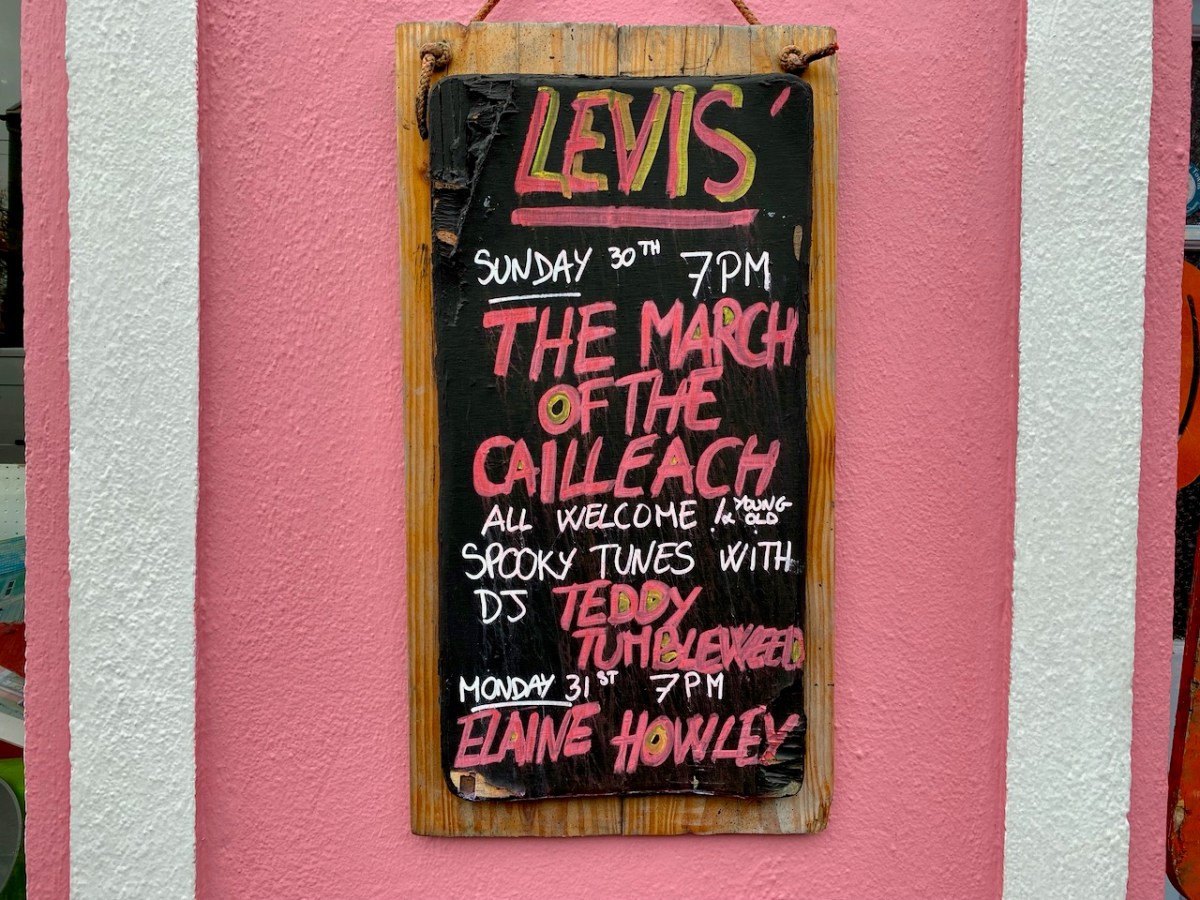 LEVIS'
SUNDAY 30TH 7PM
THE MARCH
OF THE
CAILLEACH
ALL WELCOME YOUNG
OLD
SPOOKY TUNES WITH
DJ TEDDY
TUMBLEWEED
MONDAY 31ST 7PM
ELAINE HOWLEY